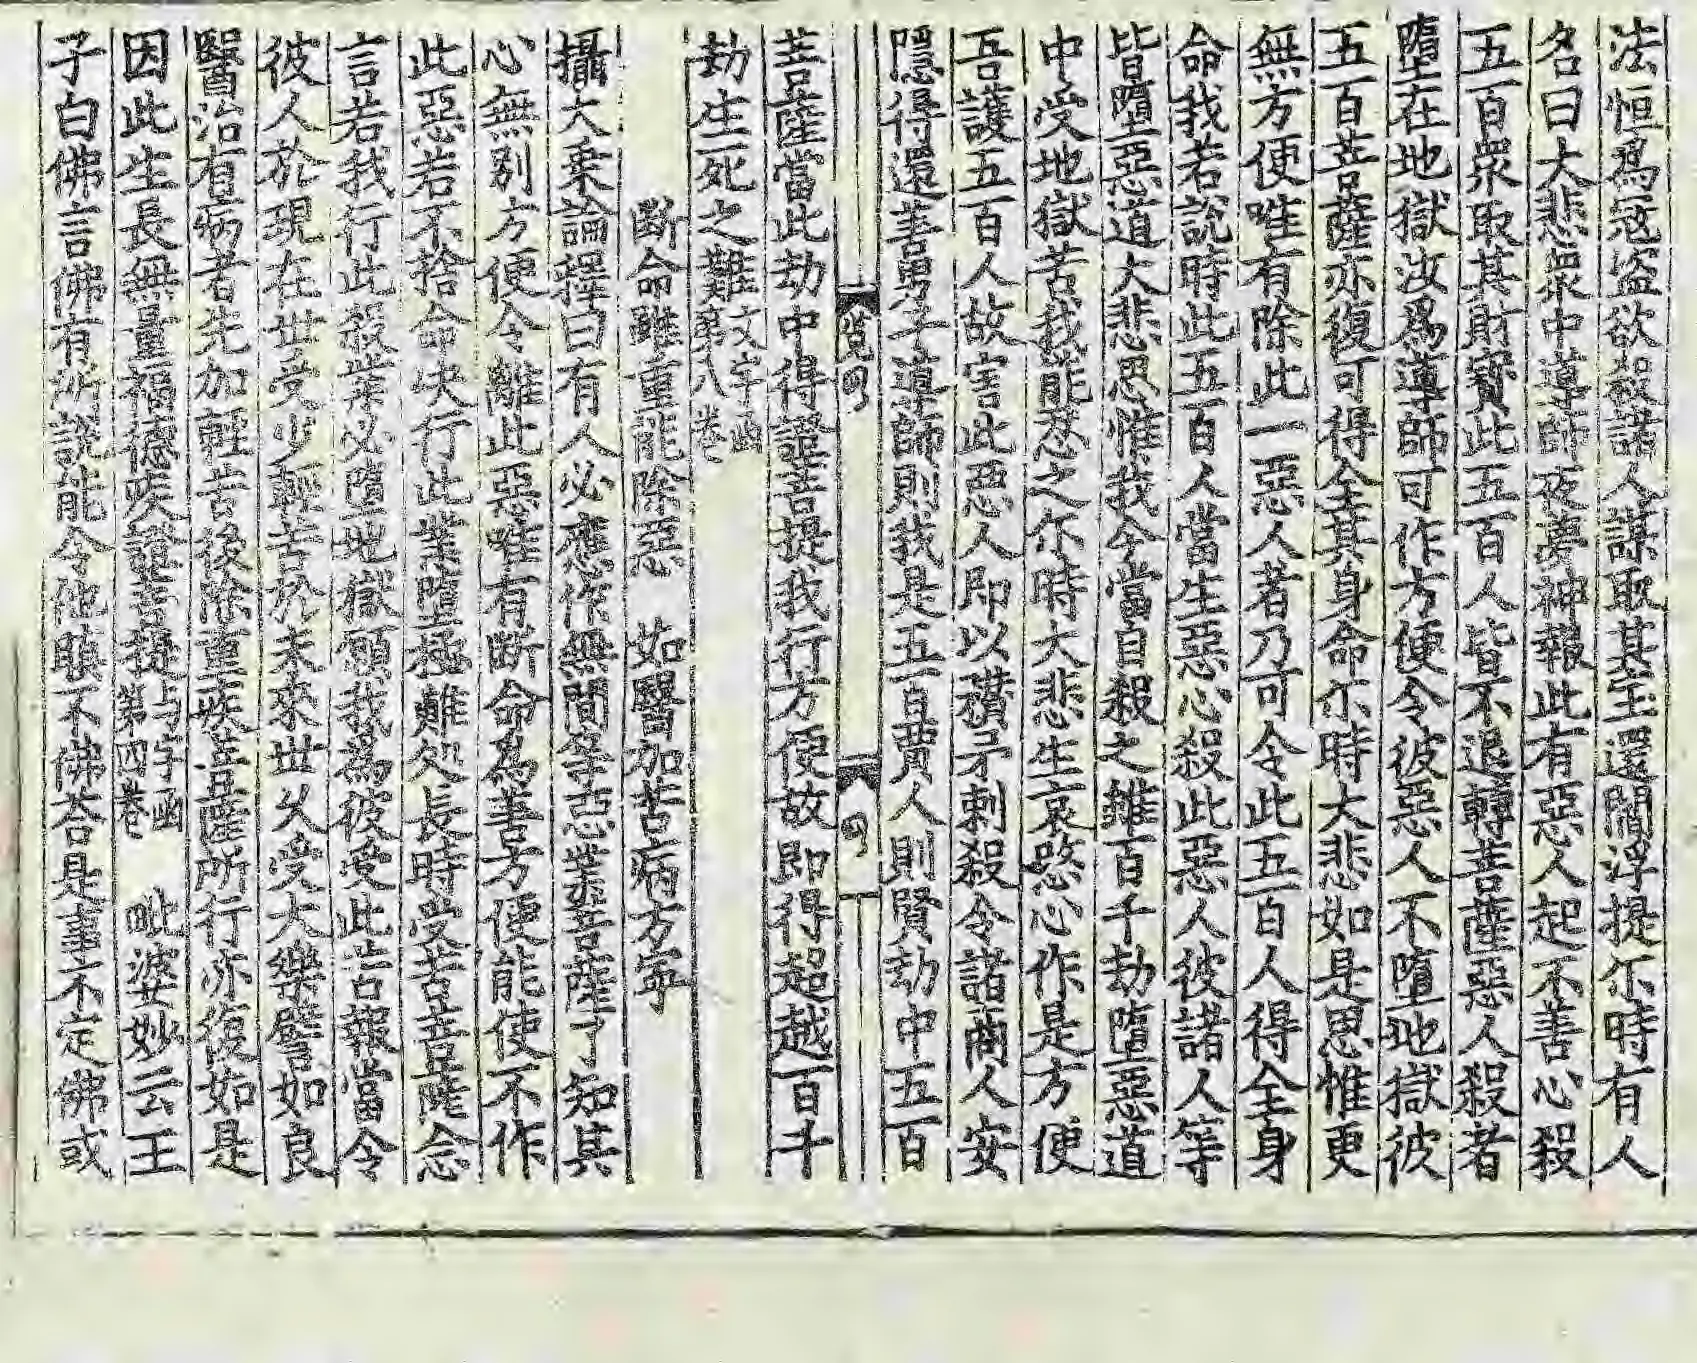 法恒爲寇盜欲殺諸人謀取其宝還閻浮提尒時有人
名曰大悲衆中導師夜夢神報此有惡人起不善心殺
五百衆取其財寳此五百人皆不退轉菩薩惡人殺者
墮在地獄汝爲導師可作方便令彼惡人不墮地獄彼
五百菩薩亦復可得全其身命尒時大悲如是思惟更
無方便唯有除此一惡人者乃可令此五百人得全身
命我若說時此五百人當生惡心殺此惡人彼諸人等
皆墮惡道大悲思惟我今當自殺之雖百千劫墮惡道
中受地獄苦我能忍之尒時大悲生哀愍心作是方便
吾護五百人故害此惡人即以䂎矛刺殺令諸商人安
隱得還善男子導師則我是五百賈人則賢劫中五百
菩薩當此劫中得證菩提我行方便故即得超越百千
劫生死之難文字函第八卷
斷命雖重能除惡　如醫加苦病方寧
攝大乗論釋曰有人必應作無間等惡業菩薩了知其
心無別方便令離此惡唯有断命爲善方便能使不作
此惡若不捨命决行此業墮極難処長時受苦菩薩念
言若我行此殺業必墮地獄願我爲彼受此苦報當令
彼人於現在世受少輕苦於未來世久受大樂譬如良
醫治有病者先加輕苦後除重疾菩薩所行亦復如是
因此生長無量福德疾證菩提与字函第四卷　毗婆妙云王
子白佛言佛有所說能令他瞋不佛荅是事不定佛或